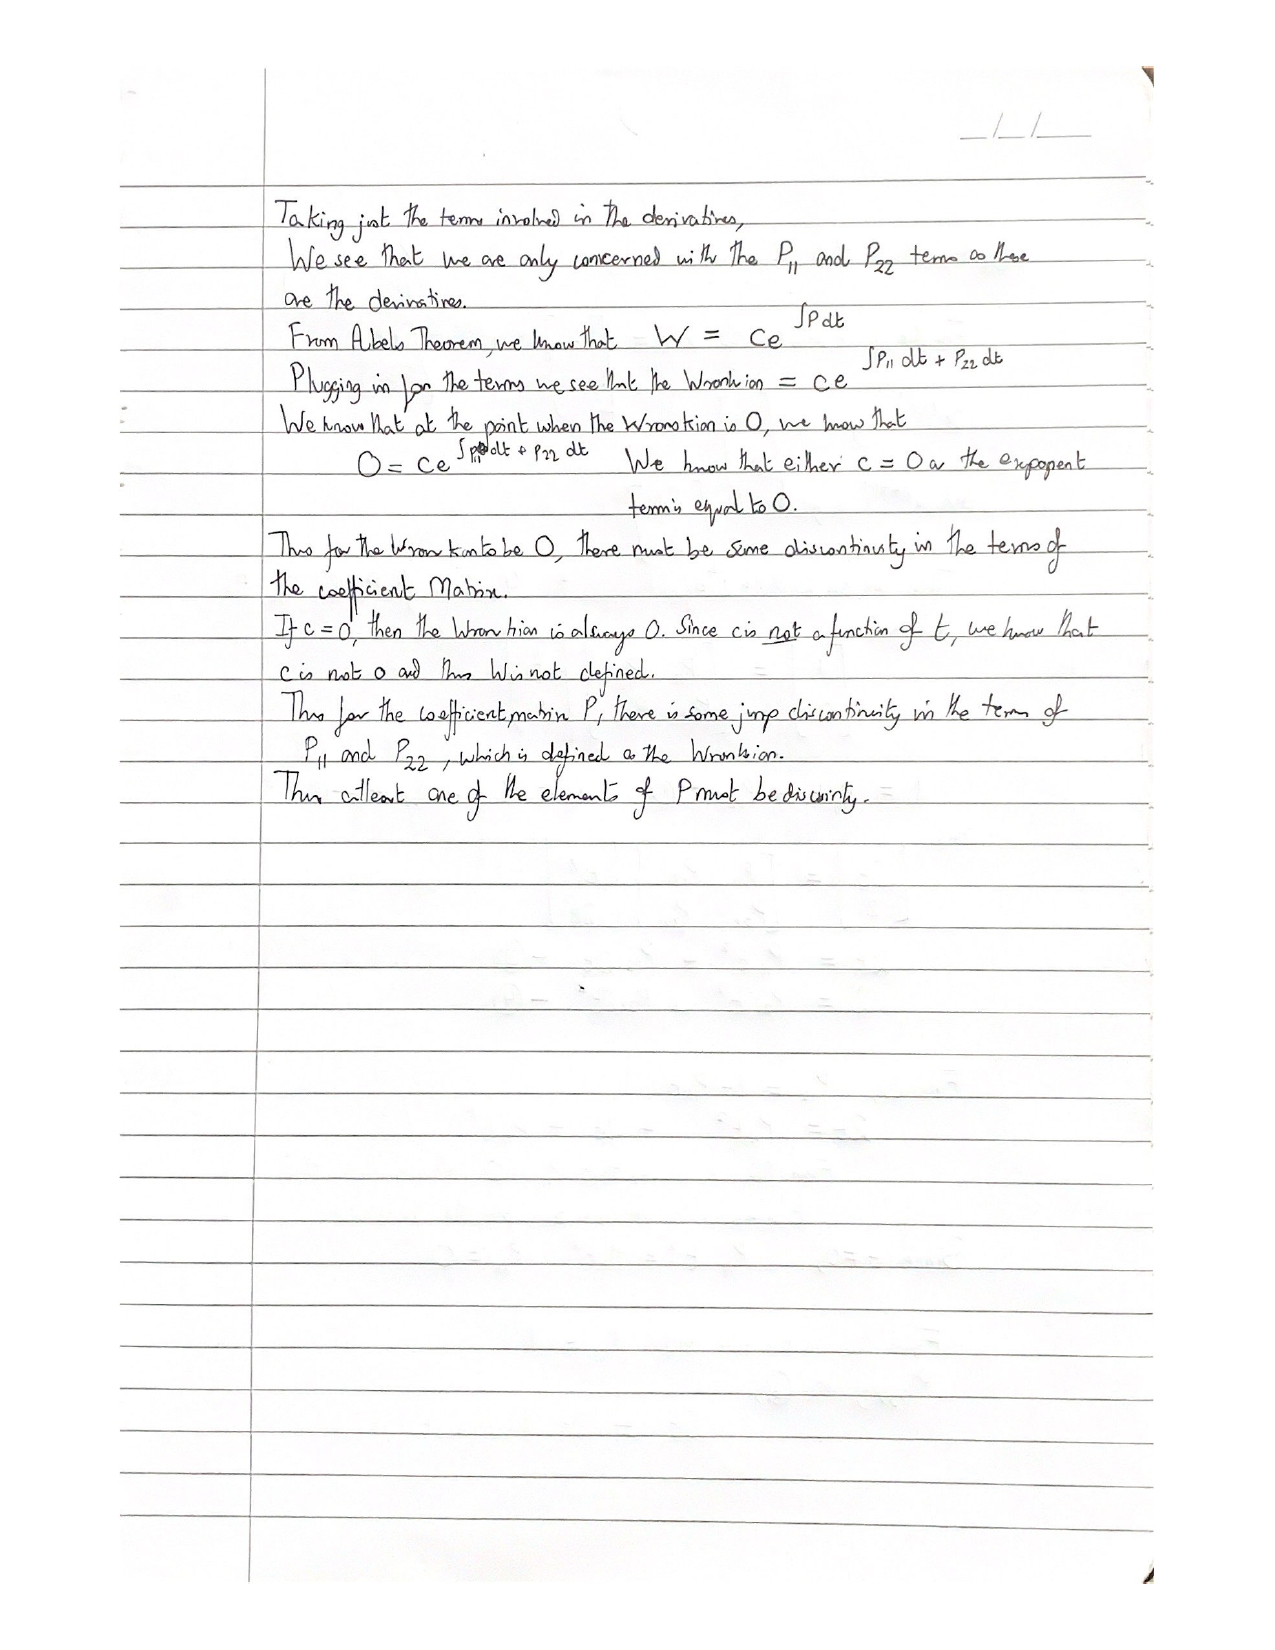 _/_/_
Taking just the terms involved in the derivatives,
We see that we are only concerned with the P₁₁ and P₂₂ terms as these
are the derivatives.
From Abels Theorem, we know that W = ce^∫P dt
Plugging in for the terms we see that the Wronkion = ce^∫P₁₁ dt + P₂₂ dt
We know that at the point when the Wronskion is 0, we know that
0 = ce^∫P₁₁ dt + P₂₂ dt We know that either c = 0 or the exponent
term is equal to 0.
Thus for the Wronkian to be 0, there must be some discontinuity in the terms of
the coefficient Matrix.
If c = 0, then the Wronkian is always 0. Since c is not a function of t, we know that
c is not 0 and thus W is not defined.
Thus for the coefficient matrix P, there is some jump discontinuity in the term of
P₁₁ and P₂₂, which is defined as the Wronksion.
Thus atleast one of the elements of P must be